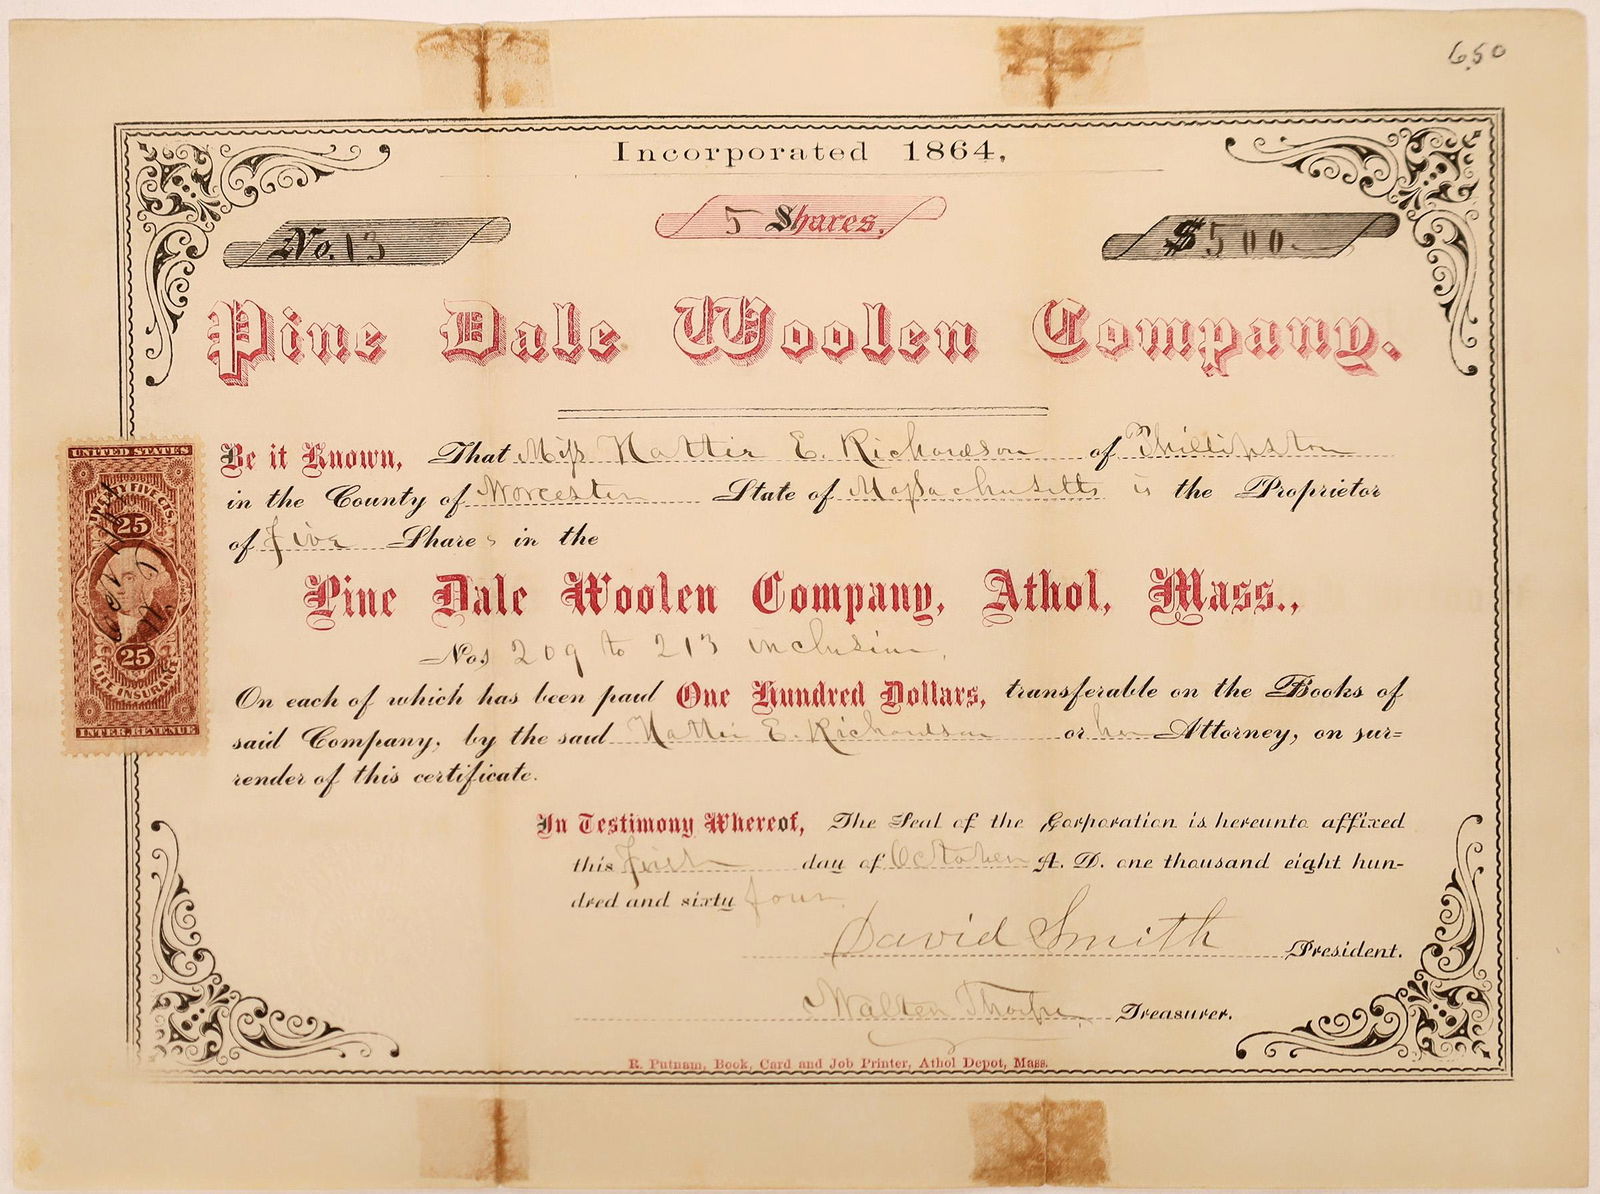 6.50
Incorporated 1864,
No. 13
5 Shares.
$500
Pine Dale Woolen Company.
Be it Known, That Miss Hattie E. Richardson of Phillipston
in the County of Worcester State of Massachusetts is the Proprietor
of five Shares in the
Pine Dale Woolen Company, Athol, Mass.,
Nos 209 to 213 inclusive,
On each of which has been paid One Hundred Dollars, transferable on the Books of
said Company, by the said Hattie E. Richardson or her Attorney, on sur=
render of this certificate.
In Testimony Whereof, The Seal of the Corporation is hereunto affixed
this first day of October A. D. one thousand eight hun-
dred and sixty four.
David Smith President.
Walter Thorpe, Treasurer.
R. Putnam, Book, Card and Job Printer, Athol Depot, Mass.
UNITED STATES
TWENTY FIVE CTS.
25
Oct 1/64
25
LIFE INSURANCE
INTER. REVENUE